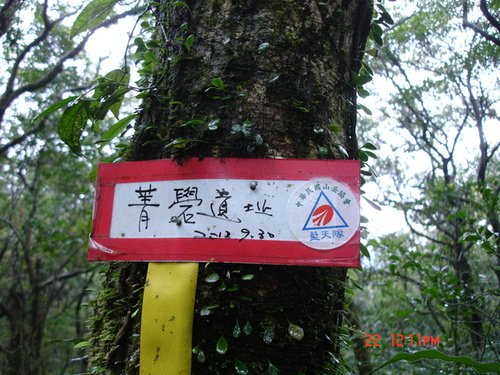 菁礐遺址
2013.9.30
中華民國山岳協會
藍天隊
12:11PM